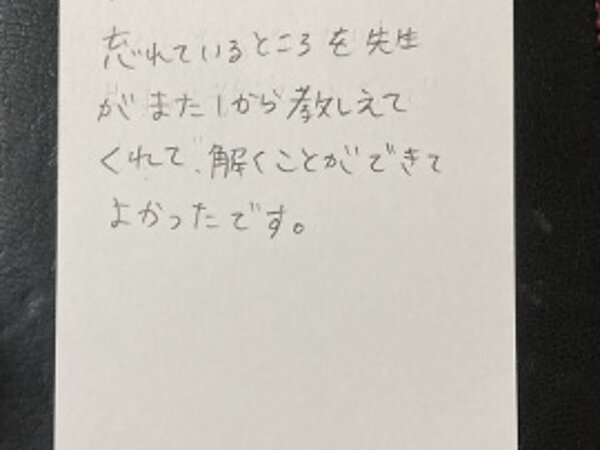 忘れているところを先生
がまた1から教しえて
くれて、解くことができて
よかったです。